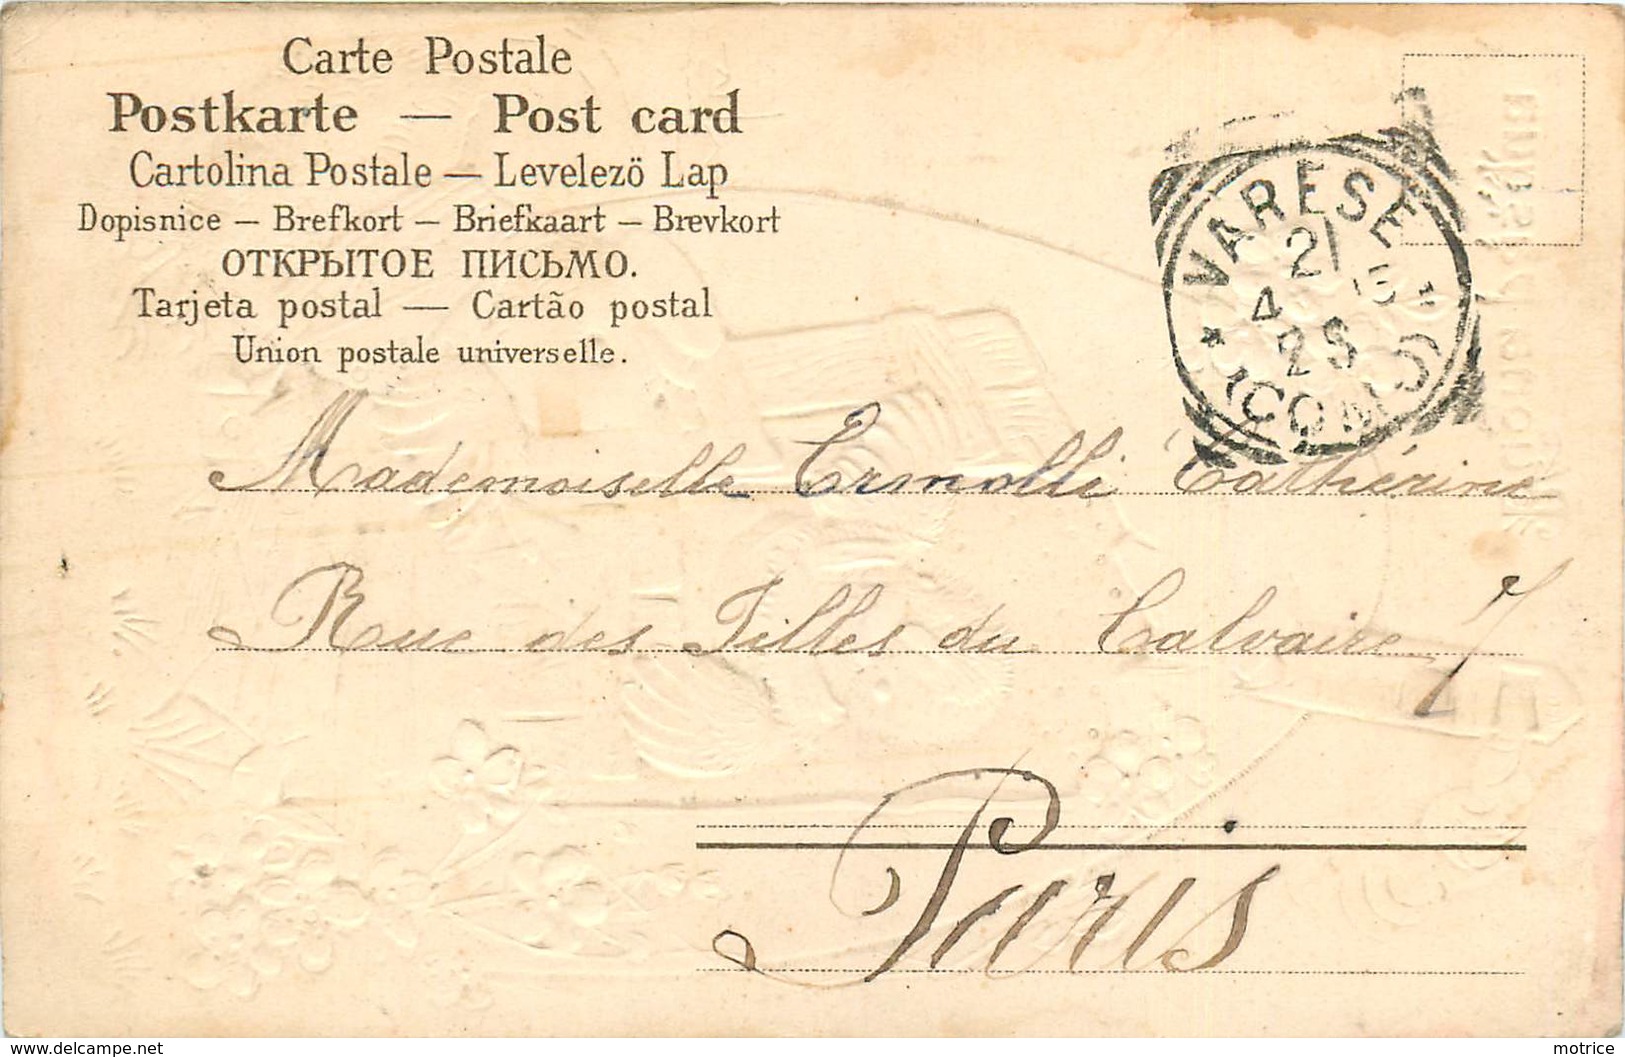 Carte Postale
Postkarte — Post card
Cartolina Postale — Levelezö Lap
Dopisnice — Brefkort — Briefkaart — Brevkort
ОТКРЫТОЕ ПИСЬМО.
Tarjeta postal — Cartão postal
Union postale universelle.
VARESE
21
4 5
25
(COMO)
Mademoiselle Ermolli Cathérine
Rue des Filles du Calvaire 7
Paris
© delcampe.net
motrice